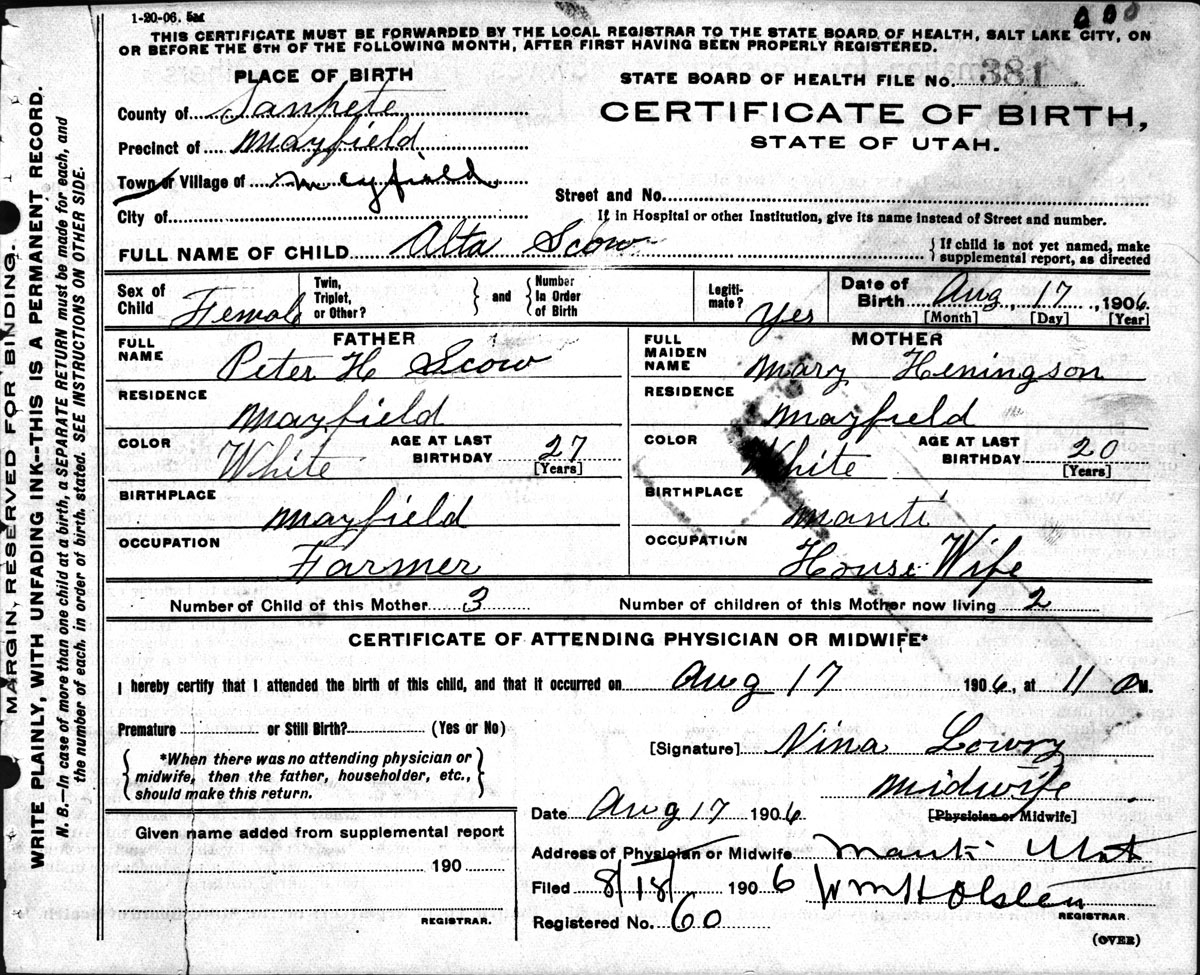 1-20-06. 5M
THIS CERTIFICATE MUST BE FORWARDED BY THE LOCAL REGISTRAR TO THE STATE BOARD OF HEALTH, SALT LAKE CITY, ON
OR BEFORE THE 5TH OF THE FOLLOWING MONTH, AFTER FIRST HAVING BEEN PROPERLY REGISTERED.
PLACE OF BIRTH
STATE BOARD OF HEALTH FILE No. 381
County of Sanpete
CERTIFICATE OF BIRTH,
STATE OF UTAH.
Precinct of Mayfield
Town or Village of Mayfield
Street and No.
City of
If in Hospital or other Institution, give its name instead of Street and number.
FULL NAME OF CHILD Alta Scow
{If child is not yet named, make
supplemental report, as directed
Sex of Child Female
Twin, Triplet, or Other? } and { Number In Order of Birth
Legitimate? Yes
Date of Birth Aug 17, 1906
[Month] [Day] [Year]
FATHER
MOTHER
FULL NAME Peter H Scow
FULL MAIDEN NAME Mary Heningson
RESIDENCE Mayfield
RESIDENCE Mayfield
COLOR White AGE AT LAST BIRTHDAY 27 [Years]
COLOR White AGE AT LAST BIRTHDAY 20 [Years]
BIRTHPLACE Mayfield
BIRTHPLACE Manti
OCCUPATION Farmer
OCCUPATION House Wife
Number of Child of this Mother 3 Number of children of this Mother now living 2
CERTIFICATE OF ATTENDING PHYSICIAN OR MIDWIFE*
I hereby certify that I attended the birth of this child, and that it occurred on Aug 17 1906, at 11 a M.
Premature or Still Birth? (Yes or No)
[Signature] Nina Lowry
{ *When there was no attending physician or
midwife, then the father, householder, etc.,
should make this return. }
Midwife
[Physician or Midwife]
Date Aug 17 1906
Given name added from supplemental report
190
REGISTRAR.
Address of Physician or Midwife Manti Utah
Filed 8/18/ 1906 Wm H Olsen
REGISTRAR.
Registered No. 60
(OVER)
MARGIN, RESERVED FOR BINDING.
WRITE PLAINLY, WITH UNFADING INK--THIS IS A PERMANENT RECORD.
N. B.—In case of more than one child at a birth, a SEPARATE RETURN must be made for each, and
the number of each, in order of birth, stated. SEE INSTRUCTIONS ON OTHER SIDE.